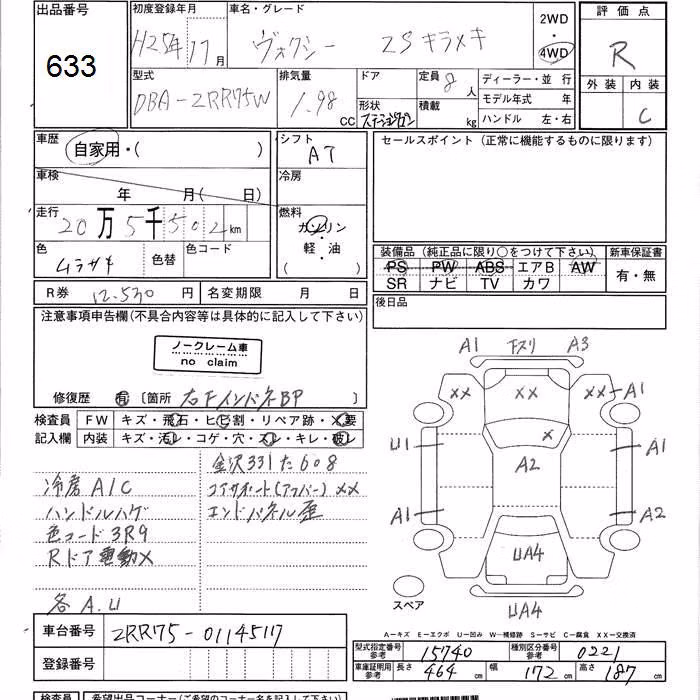 出品番号 初度登録年月 車名・グレード 2WD 評価点
633 H25年11月 ヴォクシー ZSキラメキ 4WD R
型式 排気量 ドア 定員 8人 ディーラー・並行 外装 内装
DBA-ZRR75W 1.98CC 形状 ステーションワゴン 積載 kg モデル年式 年 C
ハンドル 左・右
車歴 自家用・( ) シフト AT セールスポイント (正常に機能するものに限ります)
車検 年 月( 日) 冷房
走行 20万5千502km 燃料 ガソリン
軽・油
( )
色 ムラサキ 色替 色コード
装備品 (純正品に限り○をつけて下さい) 新車保証書
PS PW ABS エアB AW 有・無
SR ナビ TV カワ
R券 12.530円 名変期限 月 日 後日品
注意事項申告欄(不具合内容等は具体的に記入して下さい)
ノークレーム車
no claim
A1 下スリ A3
XX XX XX A1
修復歴 有 〔箇所 右FインパネBP
検査員 FW キズ・飛石・ヒビ割・リペア跡・X要
記入欄 内装 キズ・汚レ・コゲ・穴・スレ・キレ・破レ
U1 X A1
A2
金沢331た608
冷房A/C コアサポート(アッパー)XX
ハンドルハゲ エンドパネル歪
A1 A2
色コード3R9
Rドア電動X
UA4
各A.U
スペア UA4
A-キズ E-エクボ U-凹み W-補修跡 S-サビ C-腐食 XX-交換済
車台番号 ZRR75-01145117
型式指定番号 参考 15740 種別区分番号 参考 0221
登録番号
車庫証明用 参考 長さ 464cm 幅 172cm 高さ 187cm
検査員 希望出品コーナー(ご希望のコーナー